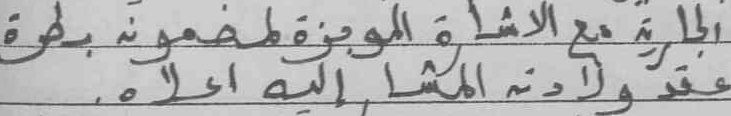 الجارية مع الاشارة الموجزة لمضمونه بطرة
عقد ولادته المشار إليه اعلاه.